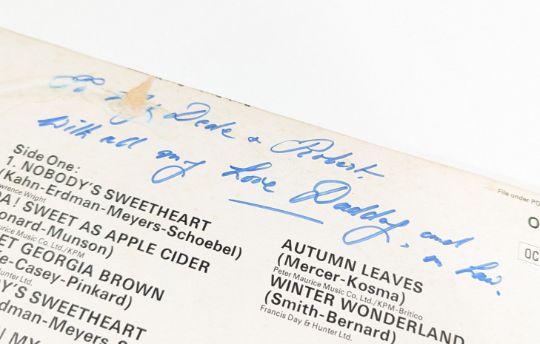 To my Dede & Robert.
With all my Love Daddy, and
in law.
File under PO
O
OC
Side One:
1. NOBODY'S SWEETHEART
(Kahn-Erdman-Meyers-Schoebel)
Lawrence Wright
A! SWEET AS APPLE CIDER
eonard-Munson)
aurice Music Co. Ltd./KPM
ET GEORGIA BROWN
ie-Casey-Pinkard)
Hunter Ltd.
DY'S SWEETHEART
rdman-Meyers-S
N MY
AUTUMN LEAVES
(Mercer-Kosma)
Peter Maurice Music Co. Ltd./KPM-Britico
WINTER WONDERLAND
(Smith-Bernard)
Francis Day & Hunter Ltd.